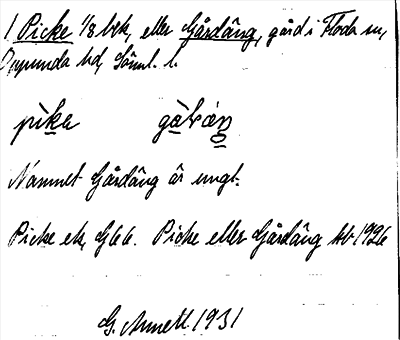 1 Picke 1/8 bek, eller Gårdäng, gård i Floda sn,
Oppunda hd, Söml. l.
pìka gàrdäŋ
Namnet Gårdäng är ungt.
Picke ek, G66. Picke eller Gårdäng kb 1926
G. Annell 1931